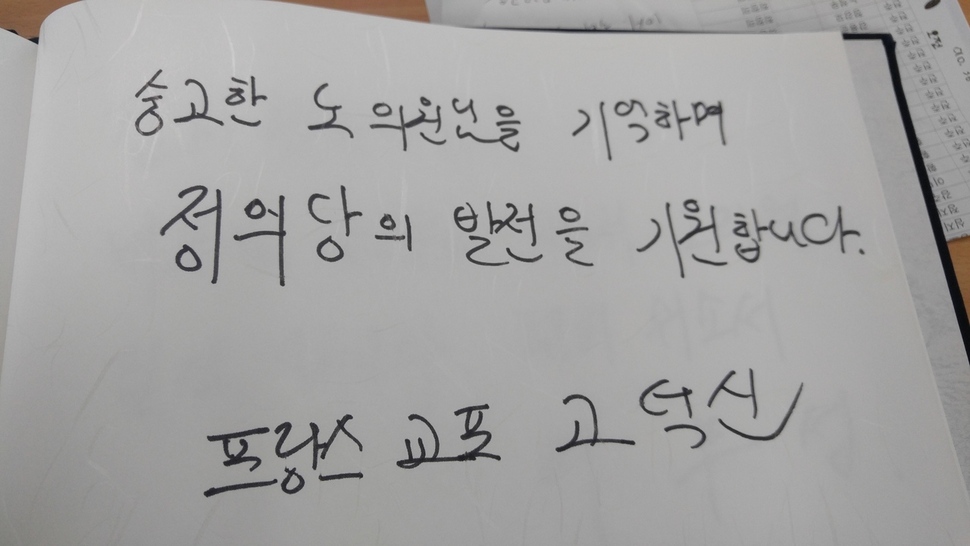 숭고한 노 의원님을 기억하며
정의당의 발전을 기원합니다.
프랑스 교포 고석신